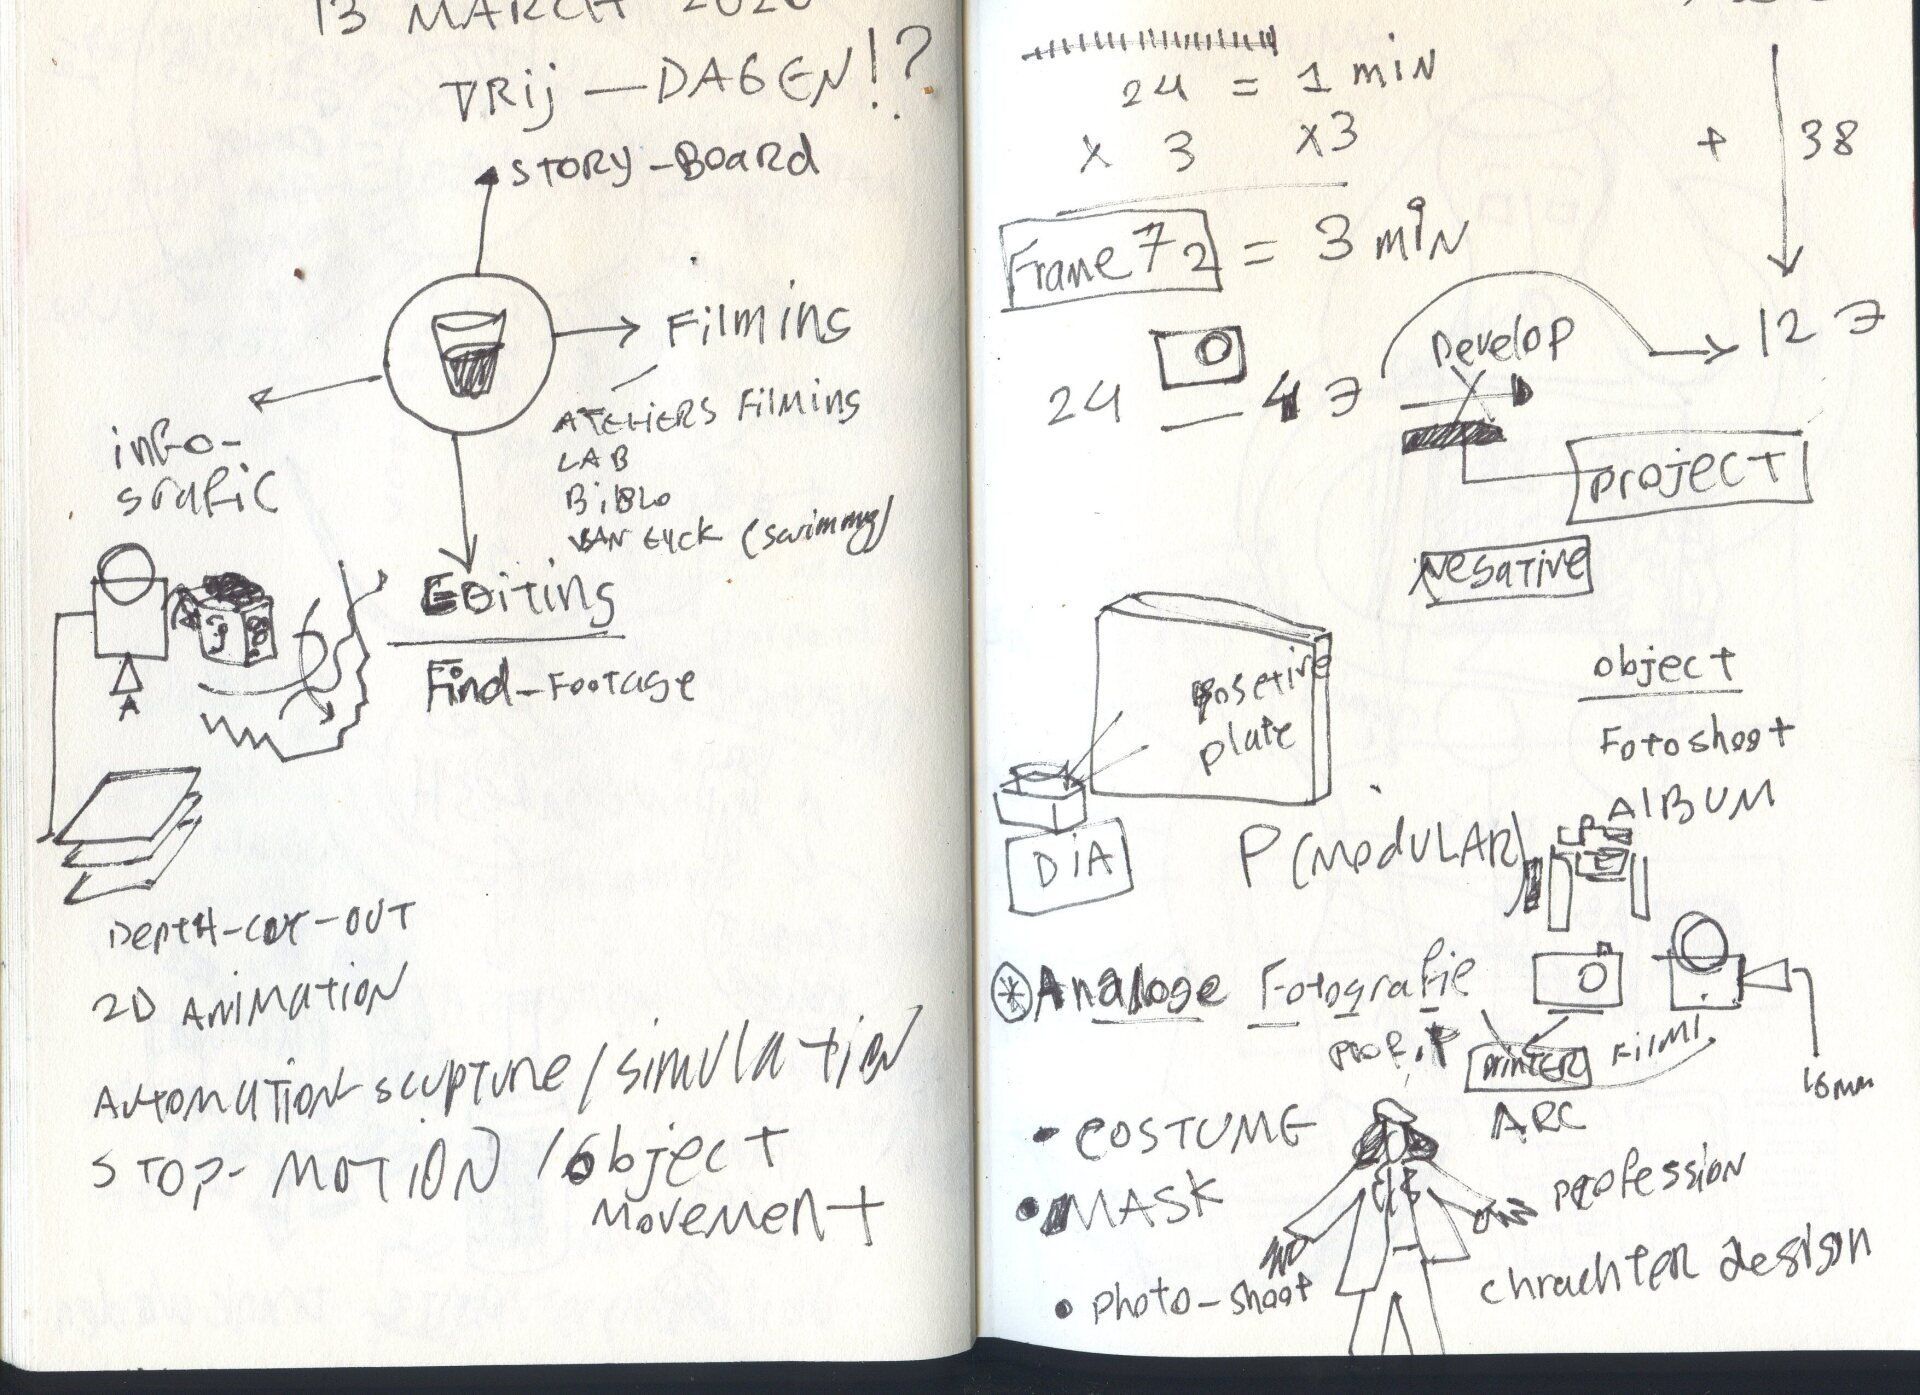 13 MARCH 2020
VRij — DAGEN!?
STORY-BOARD
Filming
ATELIERS Filming
LAB
BiBLO
VAN EYCK (swimming)
info-
grafic
Editing
Find-Footage
Depth-cut-out
2D Animation
Automation scupture / simulation
STOP-MOTION / Object
Movement
24 = 1 min
x 3 x3
Frame 72 = 3 min
+ 38
24 47
Develop
127
project
Negative
Posetive
plate
DiA
object
Fotoshoot
AlBUM
P (ModULAR)
Analoge Fotografie
PRINTER
Filmi
16mm
ARC
• COSTUME
• MASK
• photo-shoot
profession
chrachter design